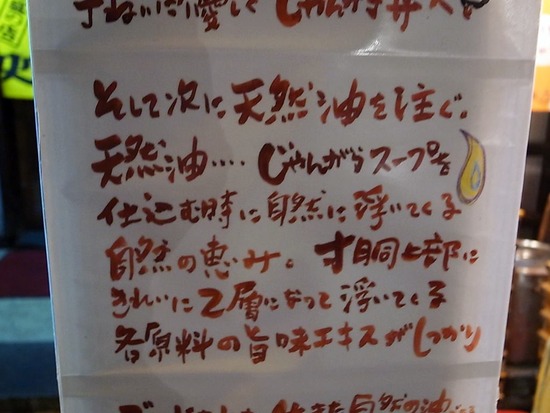 そして次に天然油を注ぐ。
天然油‥‥じゃんがらスープを
仕込む時に自然に浮いてくる
自然の恵み。寸胴上部に
きれいに2層になって浮いてくる
各原料の旨味エキスがしっかり